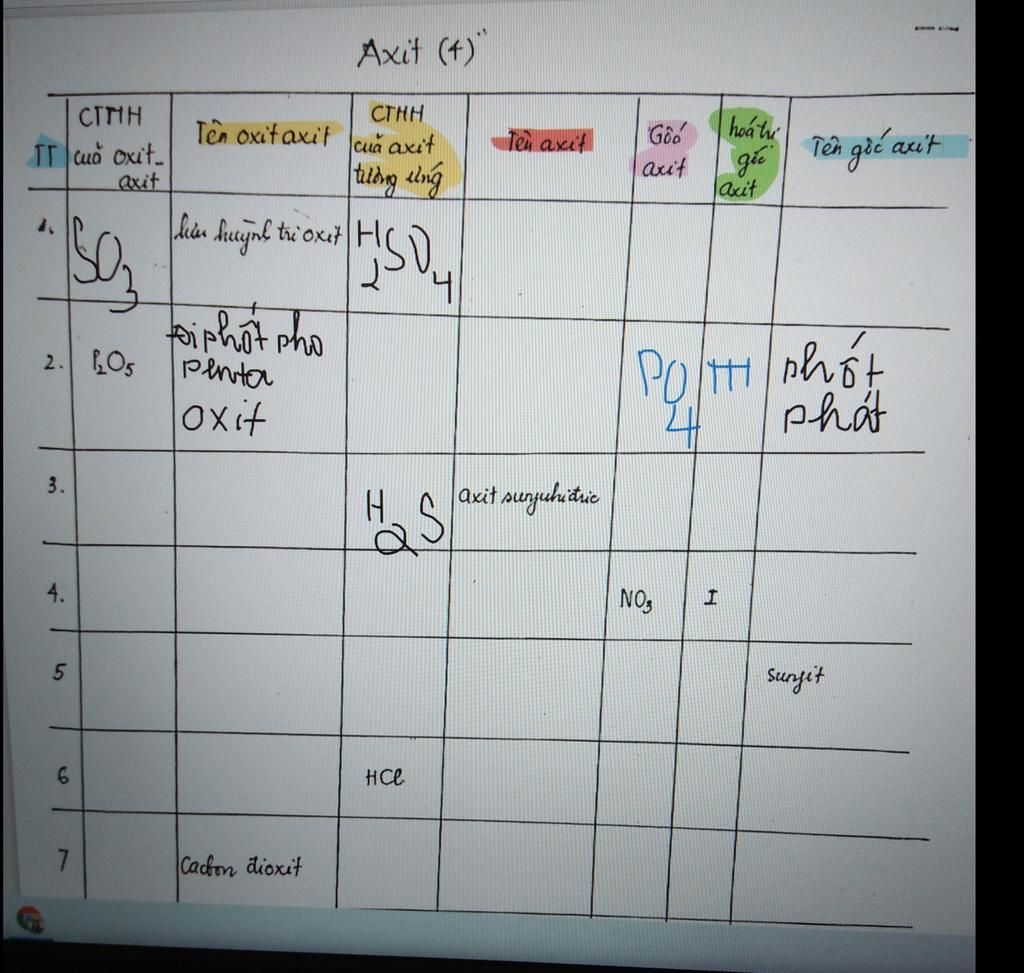 Axit (4)"
TT
CTHH
cuả oxit-
axit
Tên oxit axit
CTHH
cuả axit
tương ứng
Tên axit
Gốc
axit
hoá trị
gốc
axit
Tên gốc axit
1.
SO3
lưu huỳnh tri oxit
H2SO4
2.
P2O5
Điphốt pho
penta
oxit
PO4
III
phốt
phát
3.
H2S
axit sunfuhiđric
4.
NO3
I
5
sunfit
6
HCl
7
Cacbon đioxit